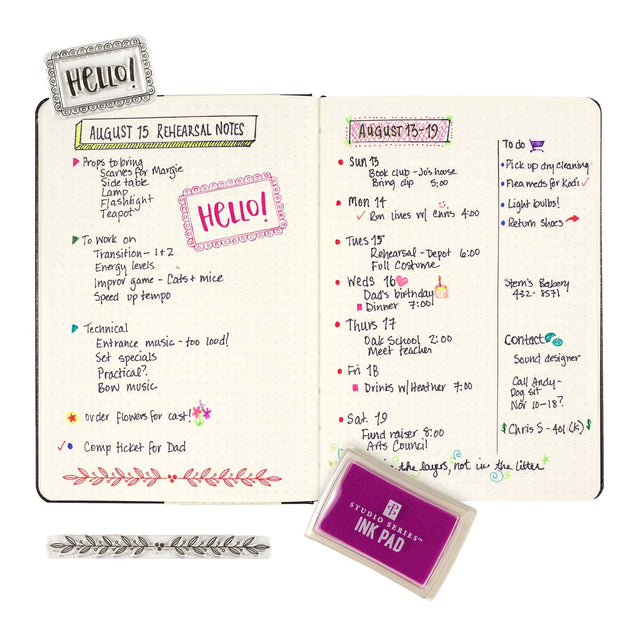 HELLO!
AUGUST 15 REHEARSAL NOTES
Props to bring
Scarves for Margie
Side table
Lamp
Flashlight
Teapot
HELLO!
To work on
Transition - 1+2
Energy levels
Improv game - Cats + mice
Speed up tempo
Technical
Entrance music - too loud!
Set specials
Practical?
Bow music
order flowers for cast!
Comp ticket for Dad
AUGUST 13-19
Sun 13
Book club - Jo's house
Bring dip 5:00
Mon 14
Run lines w/ Chris 4:00
Tues 15
Rehearsal - Depot 6:00
Full Costume
Weds 16
Dad's birthday
Dinner 7:00
Thurs 17
Oak School 2:00
Meet teacher
Fri 18
Drinks w/ Heather 7:00
Sat. 19
Fund raiser 8:00
Arts Council
in the layers, not in the litter
To do
Pick up dry cleaning
Flea meds for Kodi
Light bulbs!
Return shoes
Stern's Bakery
432-8571
Contact
Sound designer
Call Andy-
Dog sit
Nov 10-18?
Chris S - 401(k)
STUDIO SERIES™
INK PAD